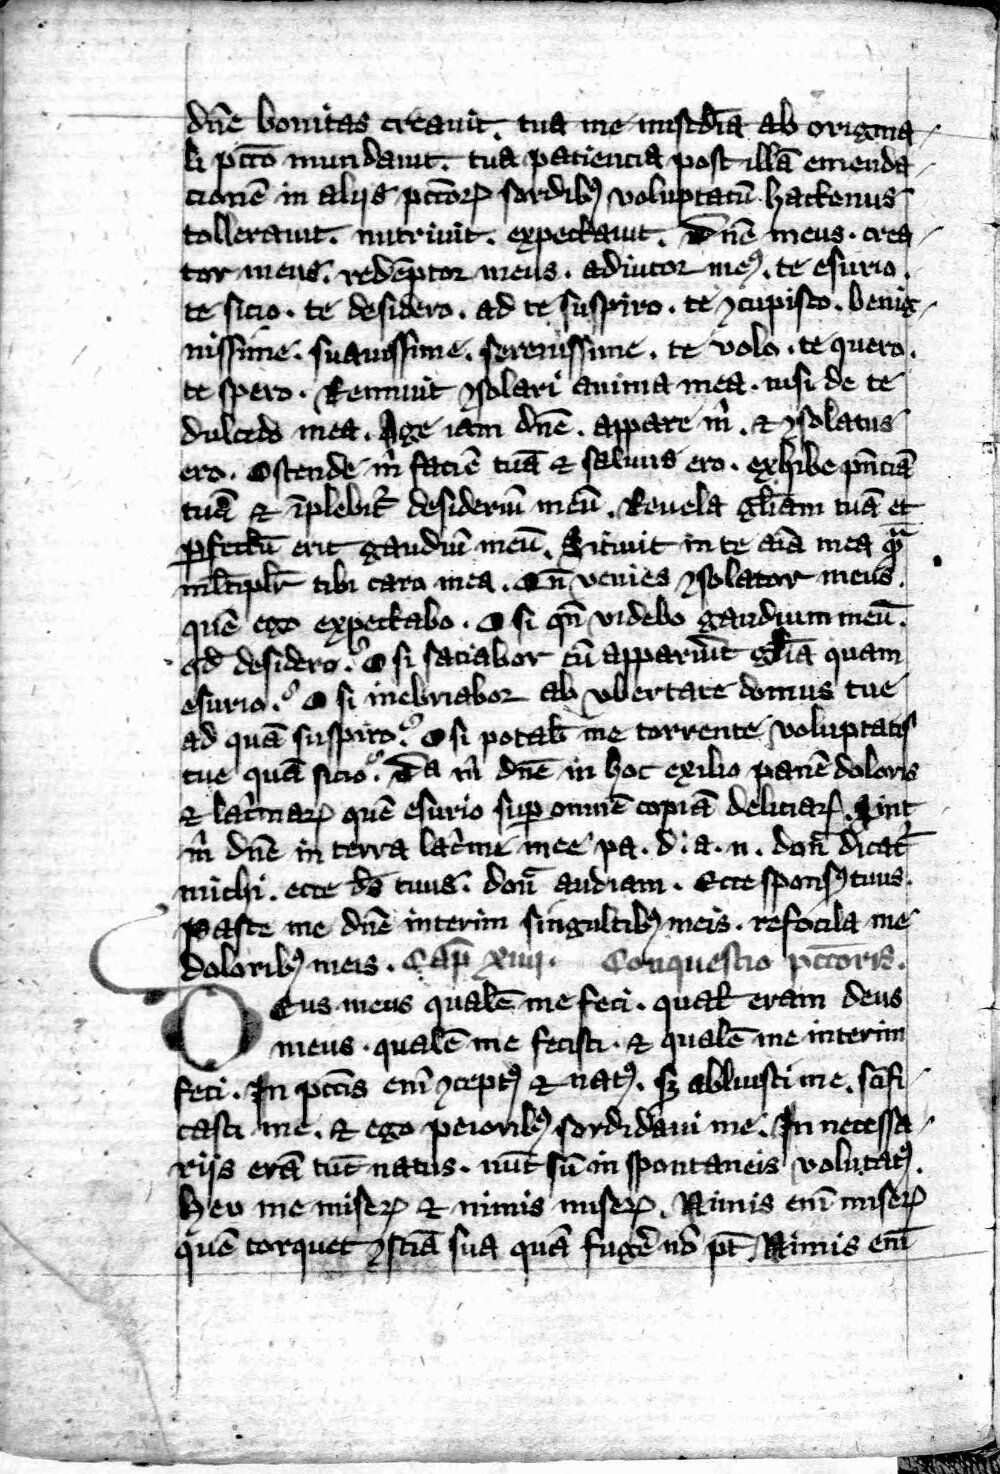 dn̄e bonitas creauit. tua me mis̄cdīa ab origina-
li pcc̄o mundauit. tua paciencia post illā emenda-
cionē in alijs pcc̄oꝝ sordibꝰ voluptatū hactenus
tollerauit. nutriuit. expectauit. Dn̄e meus. crea-
tor meus. redēptor meus. adiutor meꝰ. te esurio.
te sicio. te desidero. ad te suspiro. te ꝯcupisco. benig-
nissime. suauissime. serenissime. te volo. te quero.
te spero. Rennuit ꝯsolari anima mea. nisi de te
dulcedo mea. Age iam dn̄e. appare m̄. & ꝯsolatus
ero. Ostende m̄ faciē tuā & saluus ero. exhibe pn̄ciā
tuā & īplebit̄ desideriū meū. Reuela gl̄iam tuā et
ꝑfectū erit gaudiū meū. Sitiuit in te aīa mea qᷓ
ml̄tiplr̄ tibi caro mea. Qn̄ venies ꝯsolator meus.
quē ego expectabo. O si qn̄ videbo gaudium meū.
qd̄ desidero. O si saciabor cū apparūit gl̄ia quam
esurio. O si inebriabor ab vbertate domus tue
ad quā suspiro. O si potab̄ me torrente voluptatis
tue quā sicio. Da m̄ dn̄e in hoc exilio panē doloris
& lac̄maꝝ quē esurio suꝑ omnē copiā deliciaꝝ. Sint
m̄ dn̄e in terra lac̄me mee pa. d. a. n. don̄ dicat̄
michi. ecce ds̄ tuus. don̄ audiam. Ecce sponsꝰ tuus.
Paste me dn̄e interim singultibꝰ meis. refocila me
doloribꝰ meis. Cap̄ xiiii. Conquestio pcc̄oris.
DEus meus qualē me feci. qual̄ eram deus
meus. qualē me fecisti. & qualē me interim
feci. In pcc̄is em̄ ꝯceptꝰ & natꝰ. sꝫ abluisti me. sc̄ifi-
casti me. & ego peioribꝰ sordidaui me. In necessa-
rijs erā tūc natus. nūc sū in spontaneis volutatꝰ.
Heu me miseꝝ & nimis miseꝝ. Nimis em̄ miseꝝ
quē torquet ꝯsciā sua quā fuge̅ nō pt̄ Nimis em̄